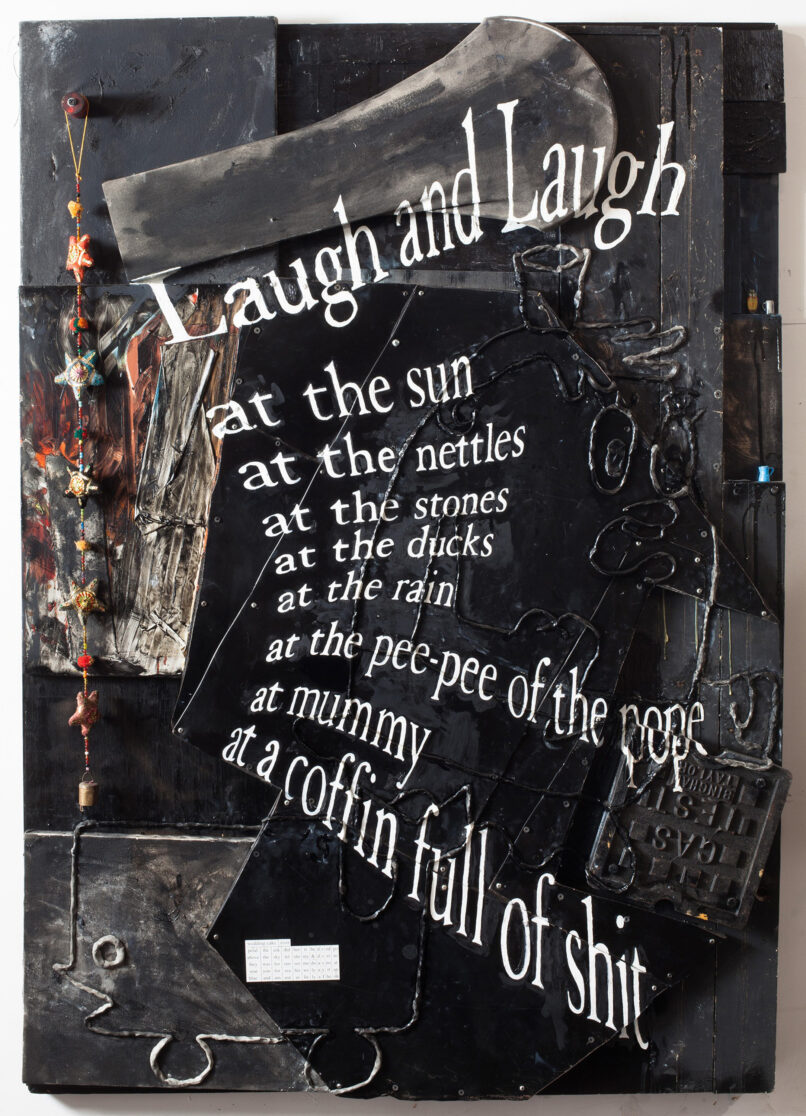 Laugh and Laugh
at the sun
at the nettles
at the stones
at the ducks
at the rain
at the pee-pee of the pope
at mummy
at a coffin full of shit
GAS